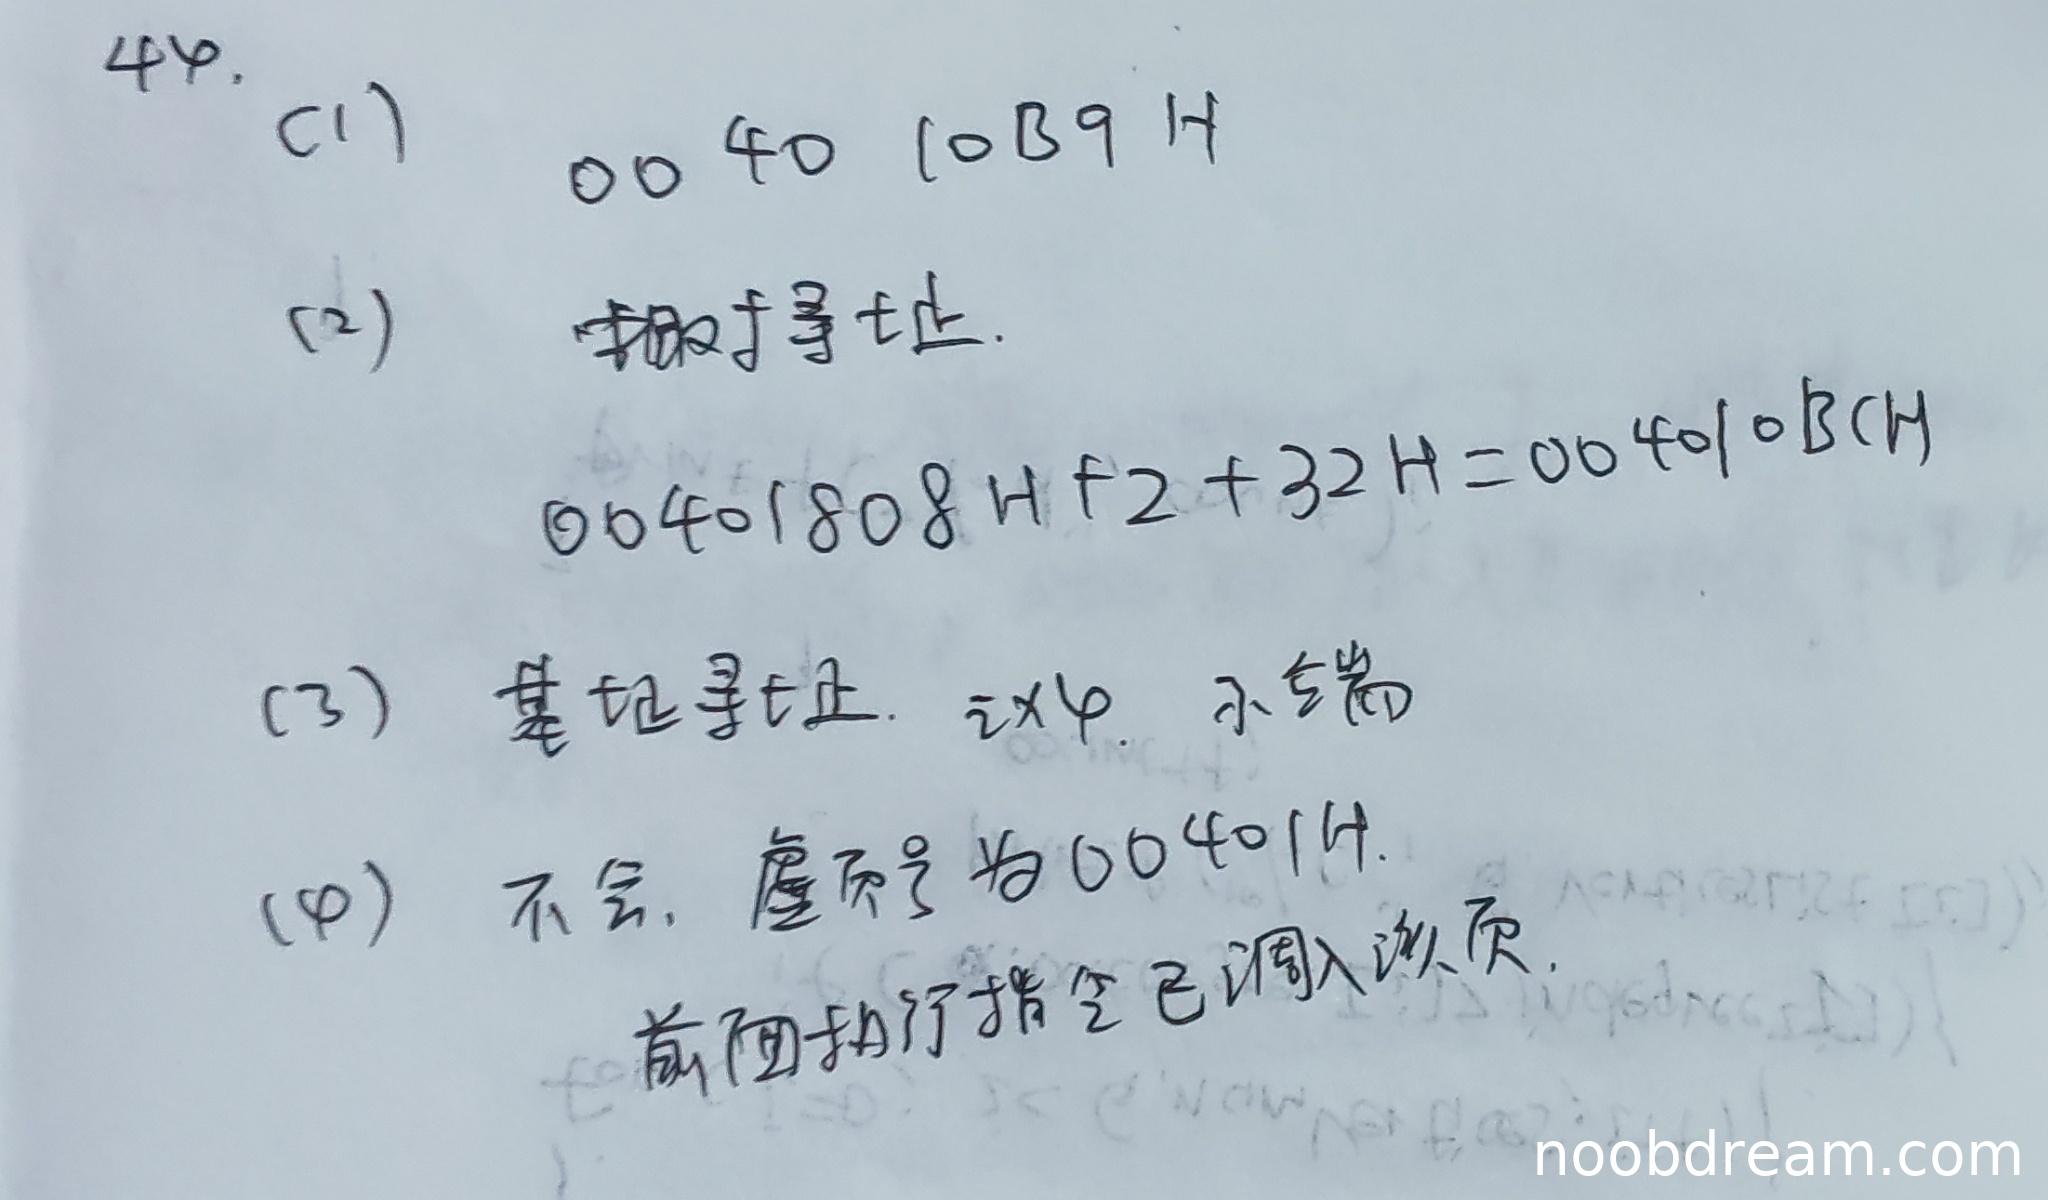 44.
(1) 0040 10B9H
(2) 寻址.
00401808H+2+32H=004010BCH
(3) 基址寻址. i×4. 小端
(4) 不会. 虚页号为00401H.
前面执行指令已调入该页.
noobdream.com